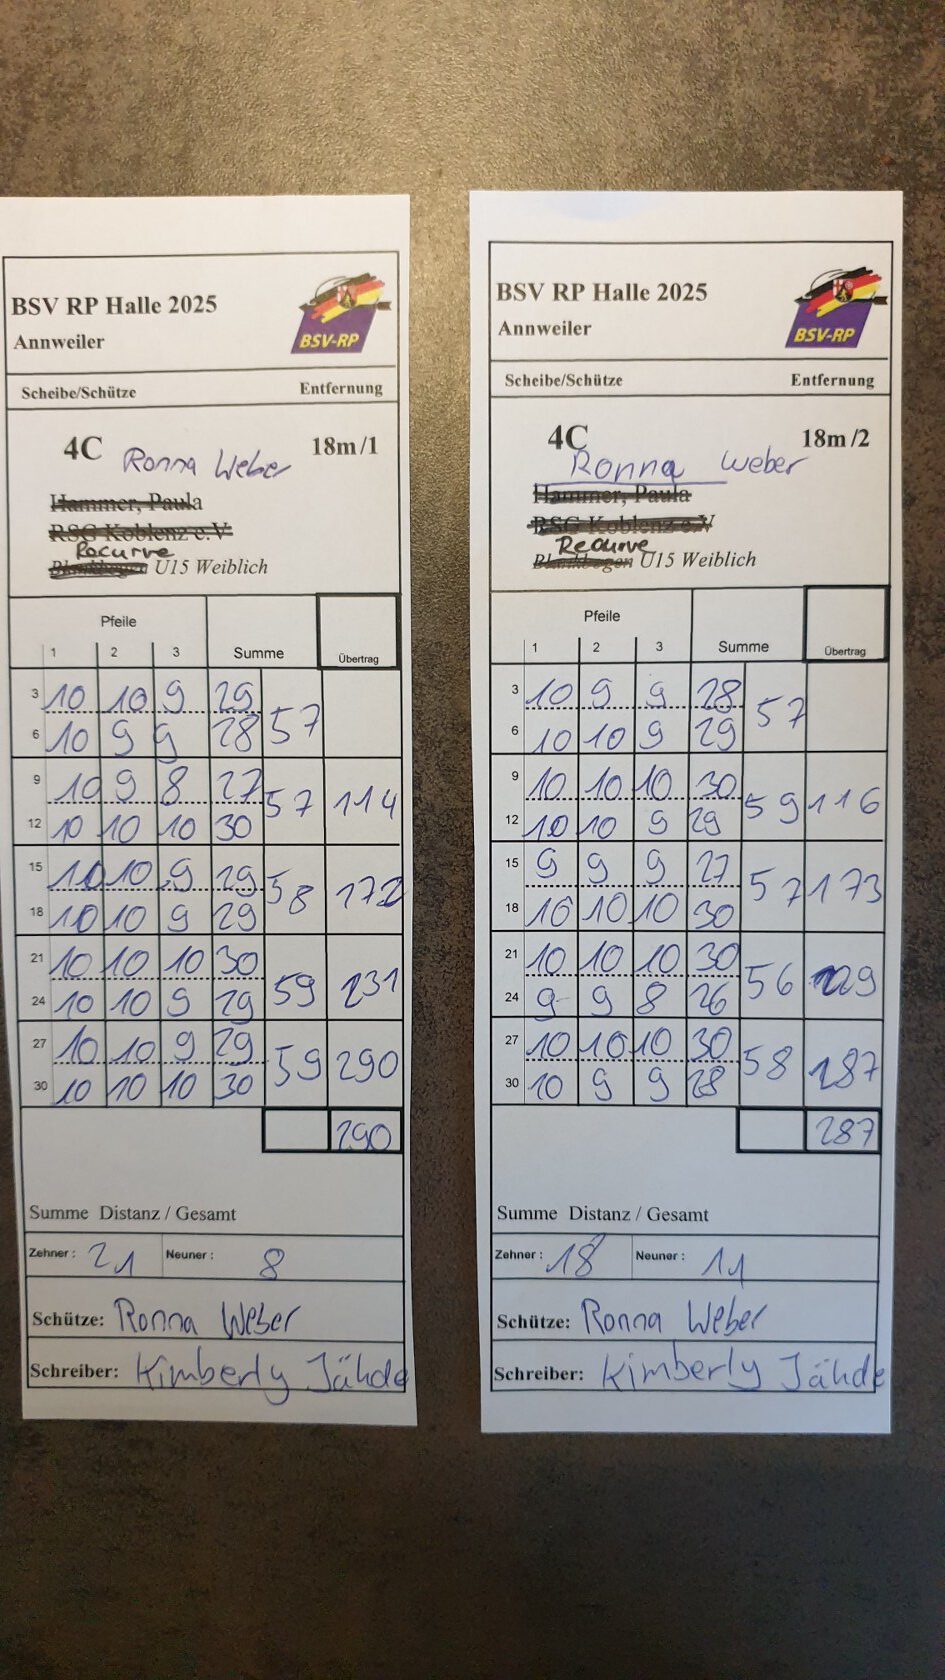 BSV RP Halle 2025
Annweiler
BSV-RP
Scheibe/Schütze Entfernung
4C Ronna Weber 18m/1
Hammer, Paula
RSG Koblenz e.V
Recurve
Blankbogen U15 Weiblich
Pfeile
1 2 3 Summe Übertrag
3 10 10 9 29
57
6 10 9 9 28
9 10 9 8 27
57 114
12 10 10 10 30
15 10 10 9 29
58 172
18 10 10 9 29
21 10 10 10 30
59 231
24 10 10 9 29
27 10 10 9 29
59 290
30 10 10 10 30
290
Summe Distanz / Gesamt
Zehner : 21 Neuner : 8
Schütze: Ronna Weber
Schreiber: Kimberly Jähde
BSV RP Halle 2025
Annweiler
BSV-RP
Scheibe/Schütze Entfernung
4C 18m/2
Ronna Weber
Hammer, Paula
RSG Koblenz e.V
Recurve
Blankbogen U15 Weiblich
Pfeile
1 2 3 Summe Übertrag
3 10 9 9 28
57
6 10 10 9 29
9 10 10 10 30
59 116
12 10 10 9 29
15 9 9 9 27
57 173
18 10 10 10 30
21 10 10 10 30
56 229
24 9 9 8 26
27 10 10 10 30
58 287
30 10 9 9 28
287
Summe Distanz / Gesamt
Zehner : 18 Neuner : 11
Schütze: Ronna Weber
Schreiber: Kimberly Jähde